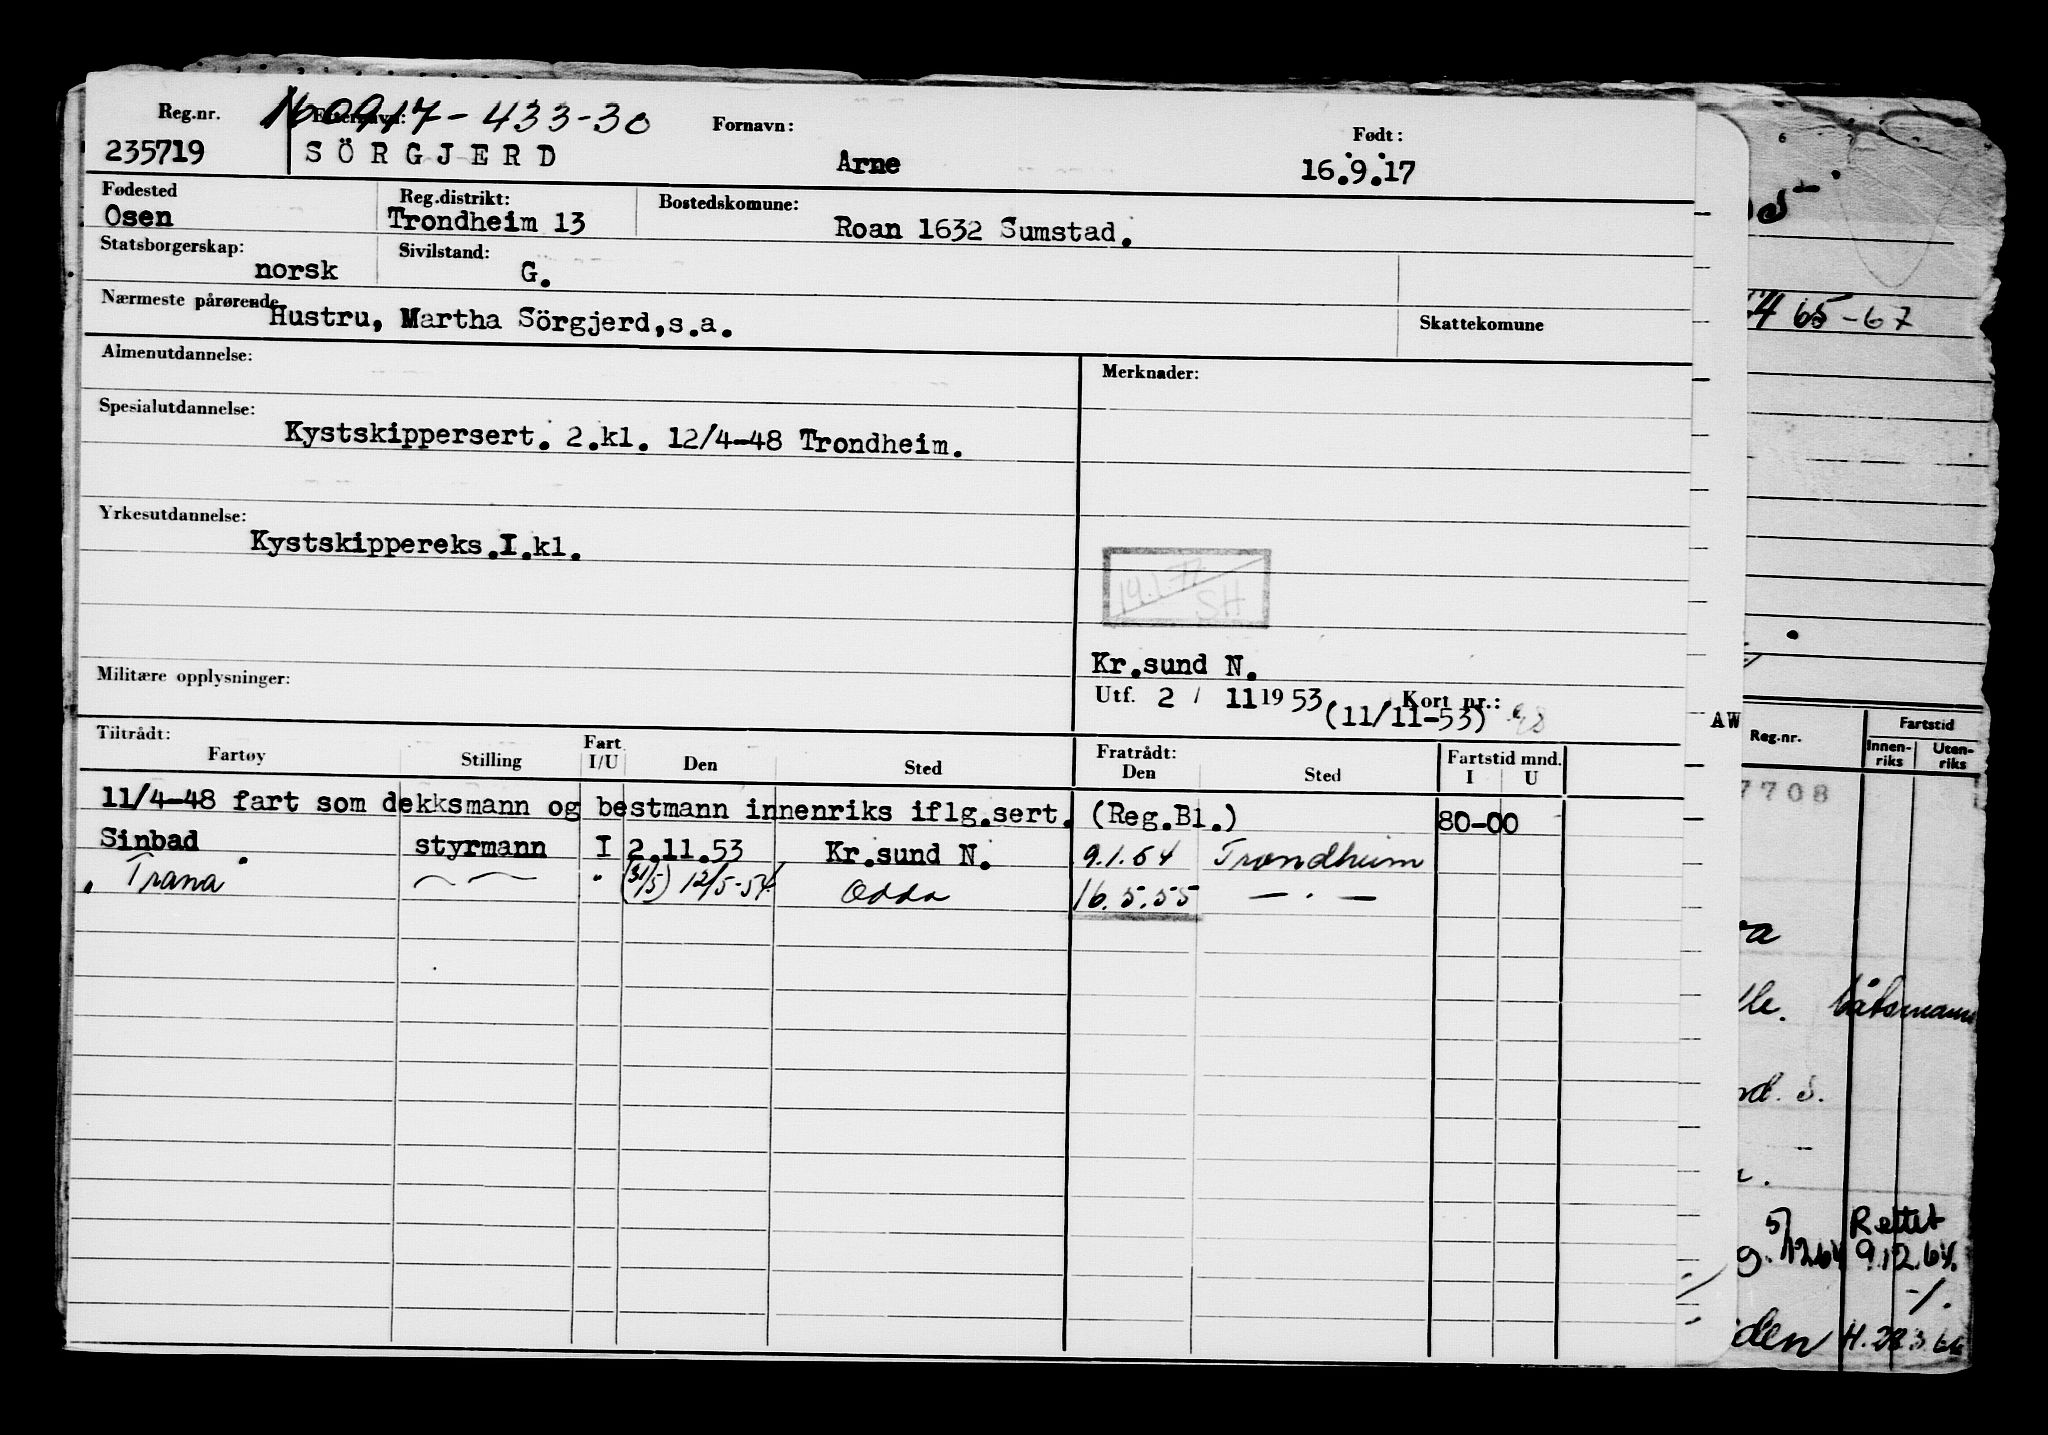 Reg.nr. Etternavn: 160917-433-30 Fornavn: Født:
235719 SÖRGJERD Arne 16.9.17
Fødested Reg.distrikt: Bostedskomune:
Osen Trondheim 13 Roan 1632 Sumstad.
Statsborgerskap: Sivilstand:
norsk G.
Nærmeste pårørende Hustru, Martha Sörgjerd,s.a. Skattekomune
Almenutdannelse: Merknader:
Spesialutdannelse:
Kystskippersert. 2.kl. 12/4-48 Trondheim.
Yrkesutdannelse:
Kystskippereks.I.kl.
SH
Kr.sund N.
Militære opplysninger: Utf. 2 / 11 1953 Kort nr.:
(11/11-53)
Tiltrådt: Fratrådt: Fartstid mnd.
Fartøy Stilling Fart I/U Den Sted Den Sted I U
11/4-48 fart som dekksmann og bestmann innenriks iflg.sert. (Reg.Bl.) 80-00
Sinbad styrmann I 2.11.53 Kr.sund N. 9.1.54 Trondheim
" Trana — — " (31/5) 12/5-54 Odda 16.5.55 — . —
65-67
AW
Reg.nr. Fartstid
Innen-riks Uten-riks
7708
båtsmann
nd. S.
5/12.64 Rettet
9.12.64.
-/.
H. 28.3.66